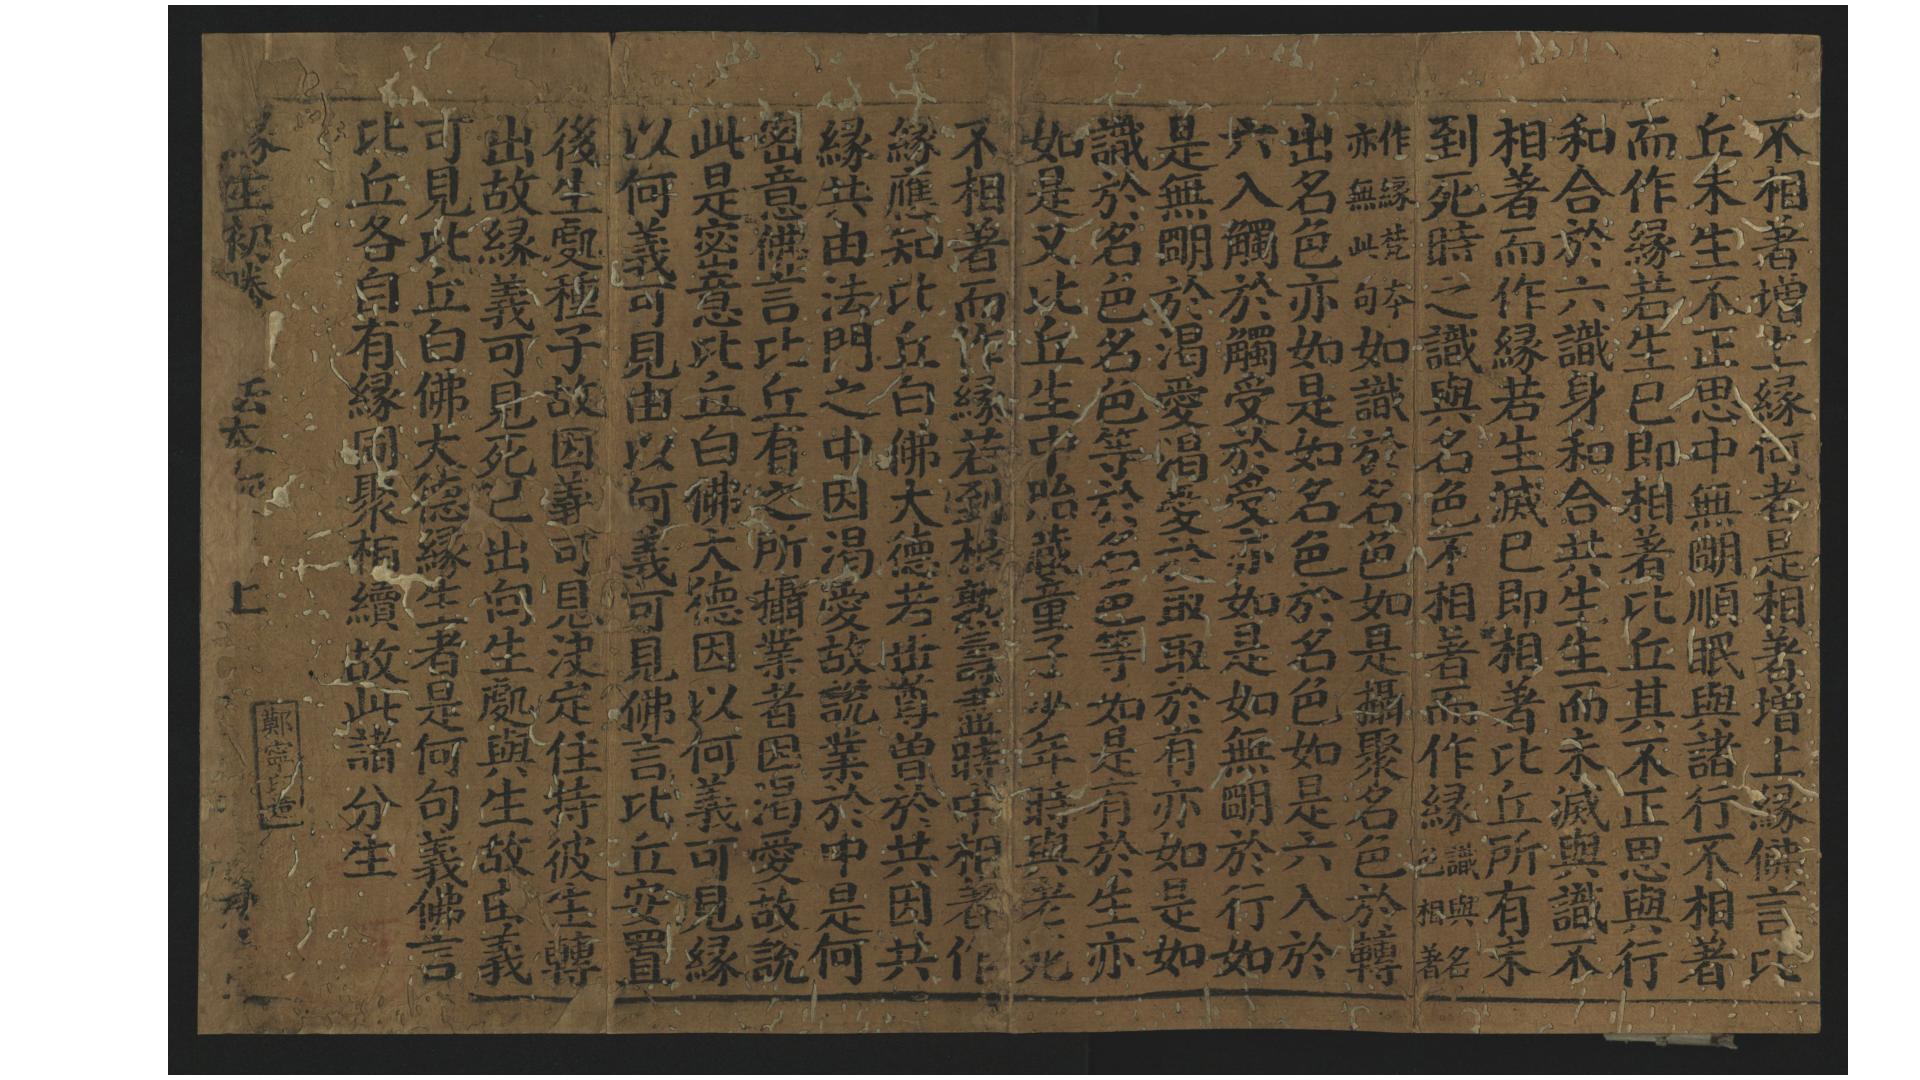 不相著增上緣何者是相著增上緣佛言比
丘未生不正思中無明順眠與諸行不相著
而作緣若生已即相著比丘其不正思與行
和合於六識身和合共生生而未滅與識不
相著而作緣若生滅已即相著比丘所有未
到死時之識與名色不相著而作緣識與名色相著
作緣梵本亦無此句如識於名色如是攝聚名色於轉
出名色亦如是如名色於名色如是六入於
六入觸於觸受於受亦如是如無明於行如
是無明於渴愛渴愛於取取於有亦如是如
識於名色名色等於名色等如是有於生亦
如是又比丘生中胎藏童子少年時與老死
不相著而作緣若到根熟壽盡時中相著作
緣應知比丘白佛大德若世尊曾於共因共
緣共由法門之中因渴愛故說業於中是何
密意佛言比丘有之所攝業者因渴愛故說
此是密意比丘白佛大德因以何義可見緣
以何義可見由以何義可見佛言比丘安置
後生處種子故因義可見決定住持彼生轉
出故緣義可見死已出向生處與生故由義
可見比丘白佛大德緣生者是何句義佛言
比丘各自有緣同聚相續故此諸分生
緣生初勝 上
鄭寧印造